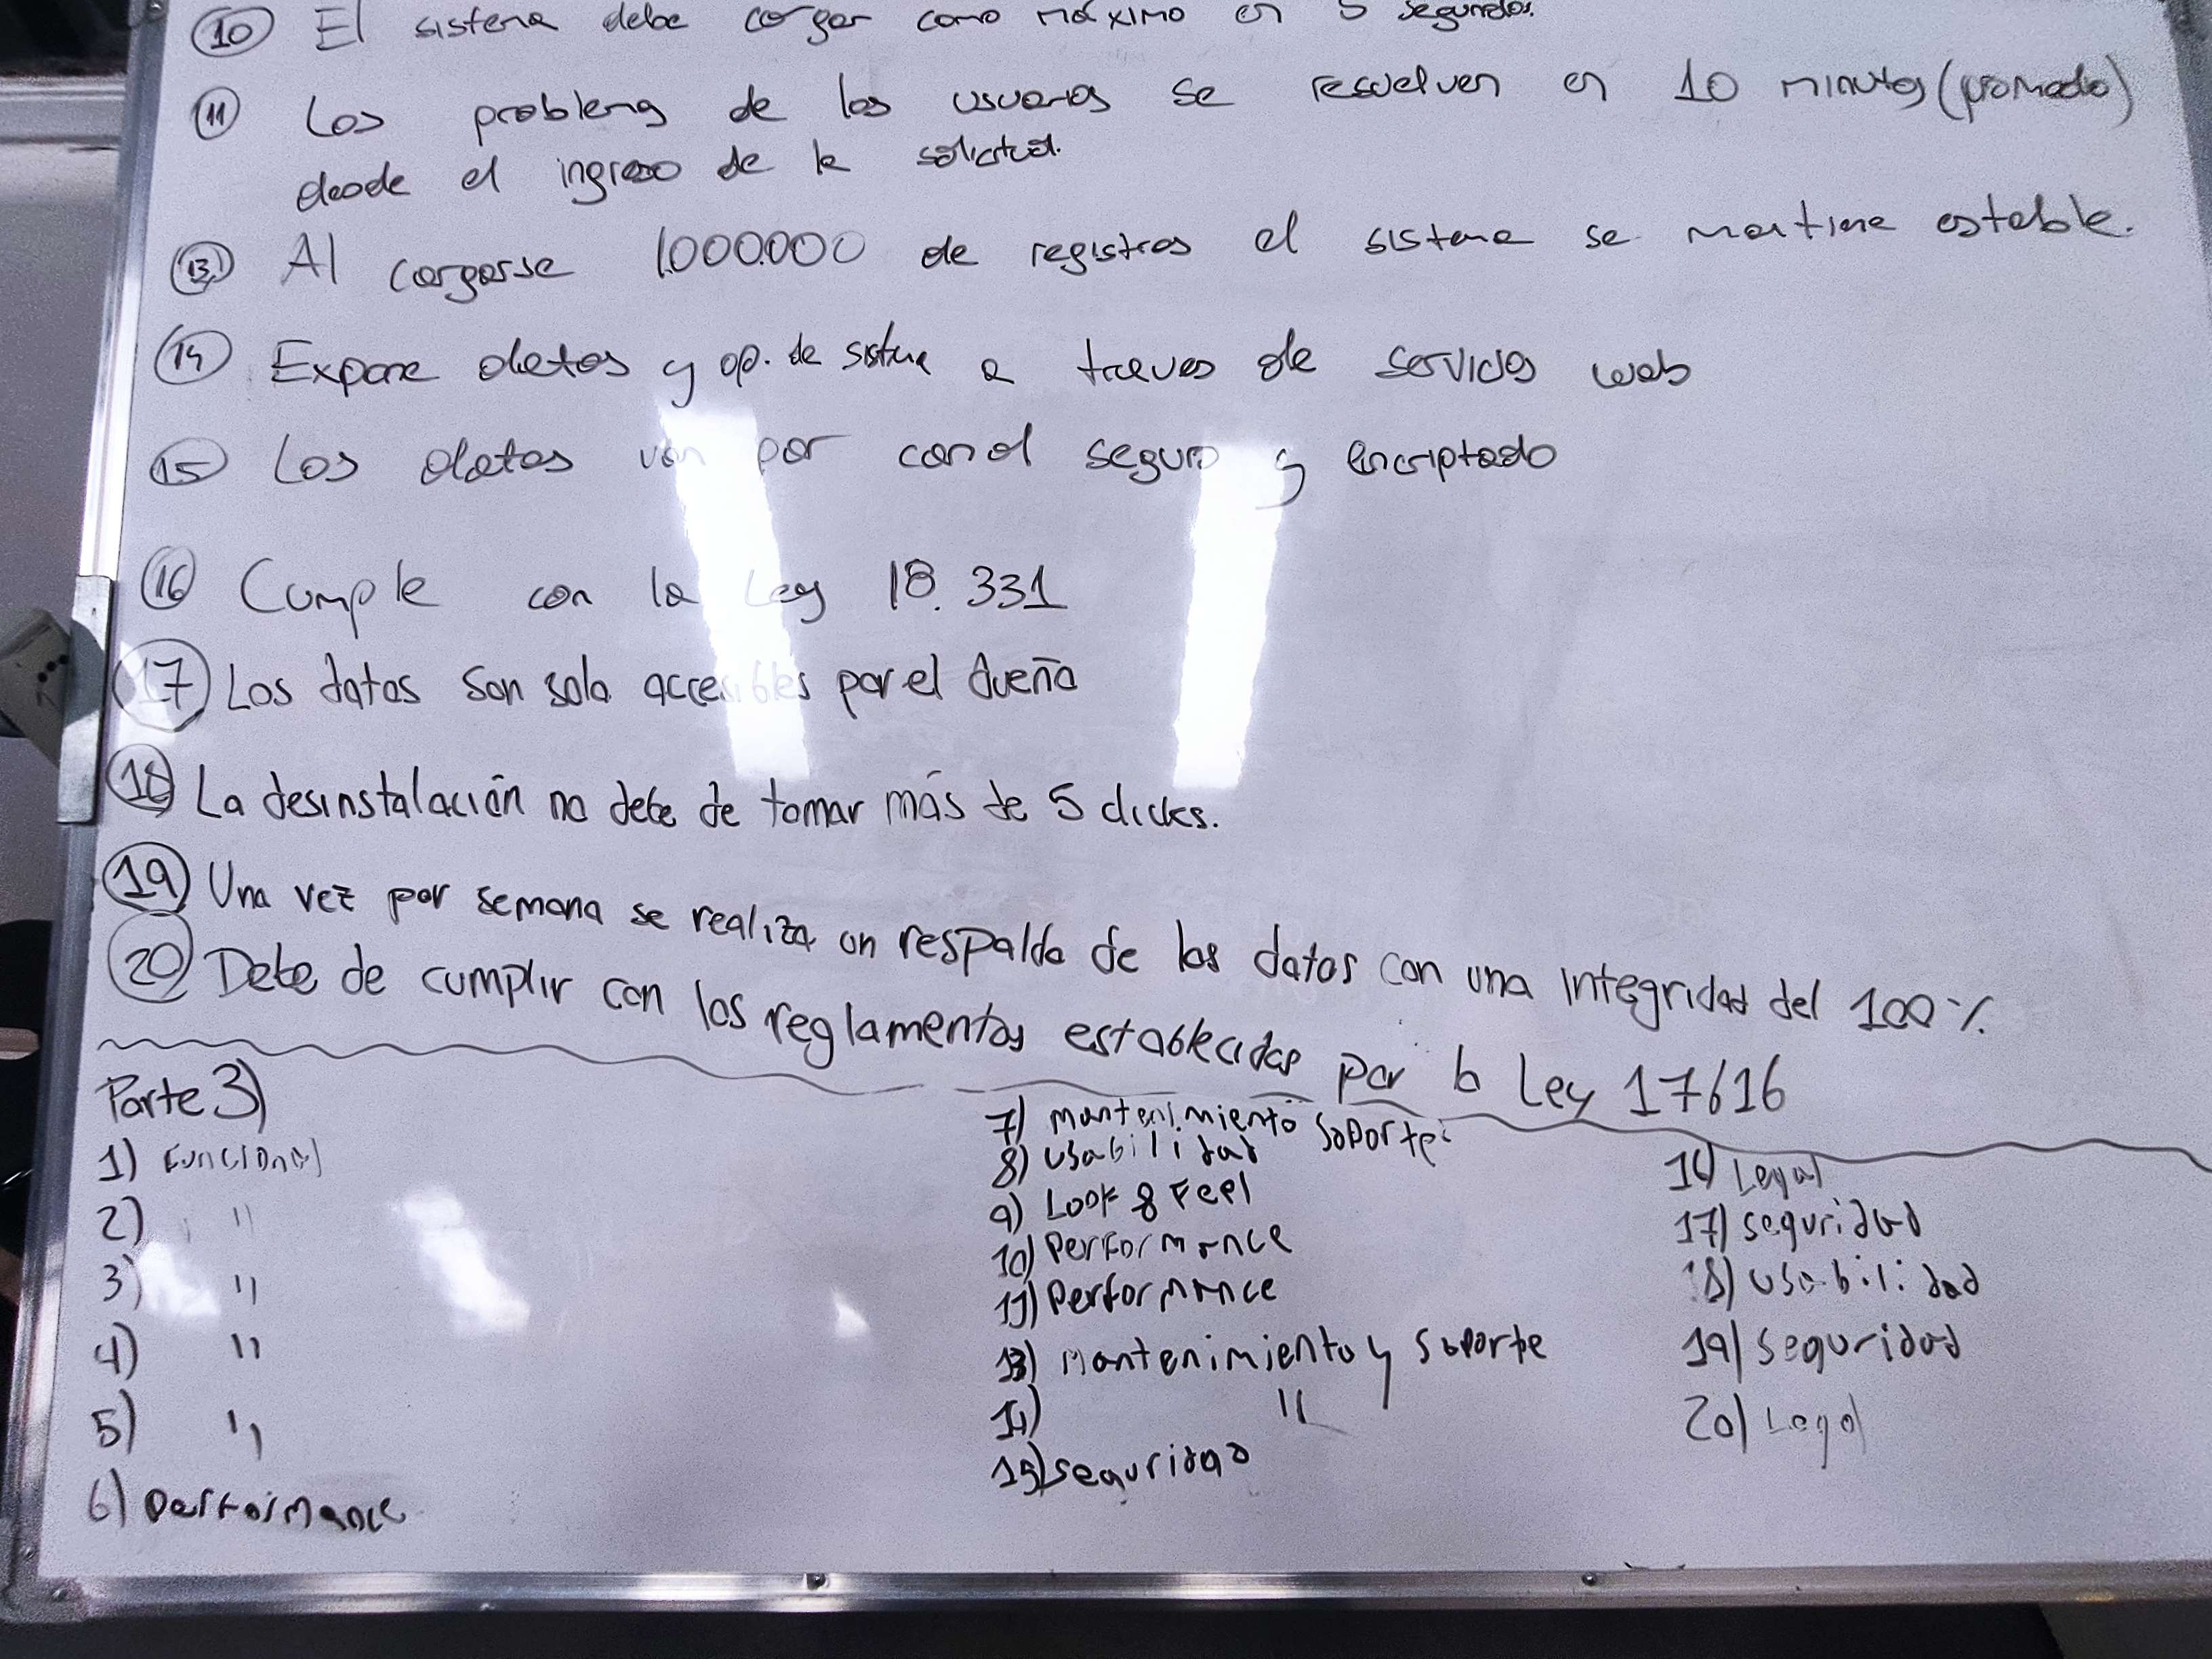 10 El sistema debe cargar como máximo en 5 segundos.
11 Los problems de los usuarios se resuelven en 10 minutos (promedio)
desde el ingreso de la solicitud.
13 Al cargarse 1.000.000 de registros el sistema se mantiene estable.
14 Expone datos y op. de sistema a traves de servicios web
15 Los datos van por canal seguro y encriptado
16 Cumple con la Ley 18.331
17 Los datos son solo accesibles por el dueño
18 La desinstalación no debe de tomar más de 5 clicks.
19 Una vez por semana se realiza un respaldo de los datos con una integridad del 100%.
20 Debe de cumplir con los reglamentos establecidos por la Ley 17616
Parte 3)
1) Funcional
2) "
3) "
4) "
5) "
6) Performance
7) mantenimiento soporte
8) usabilidad
9) Look & Feel
10) Performance
11) Performance
13) Mantenimiento y soporte
14) "
15) seguridad
16) Legal
17) seguridad
18) usabilidad
19) seguridad
20) Legal